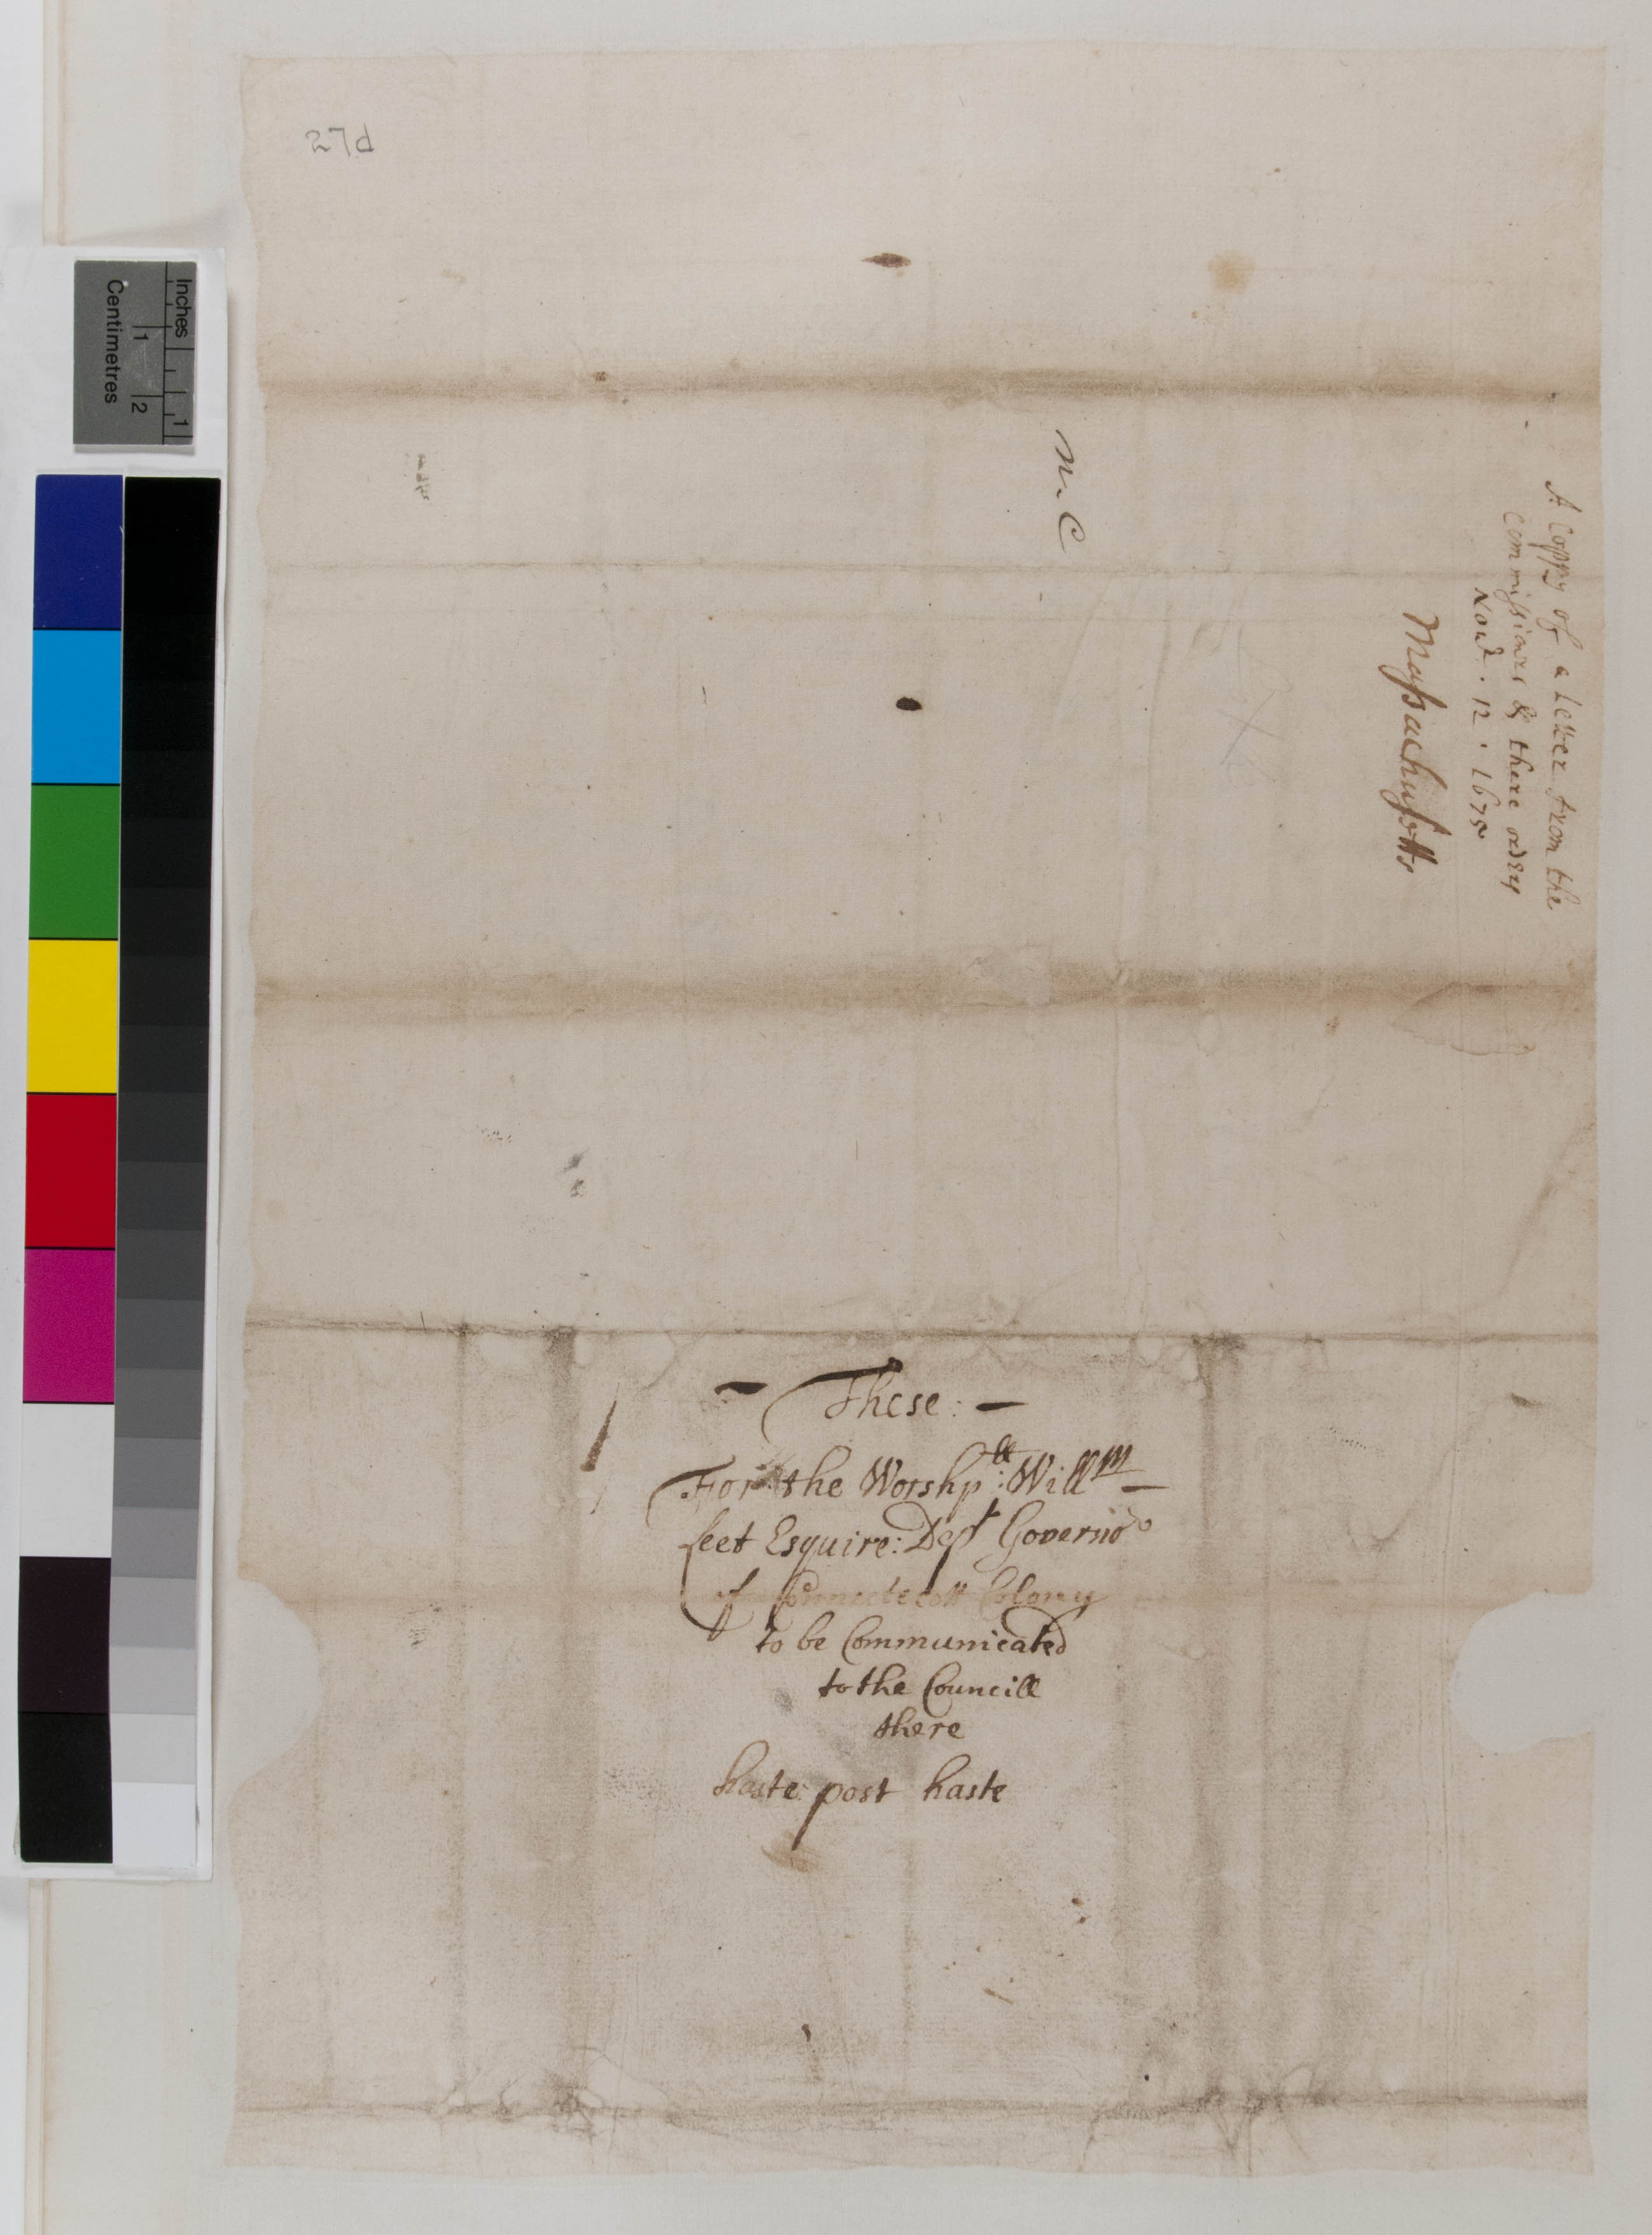 27d
Inches 1
Centimetres 1 2
n. C
A Coppy of a letter from the
Commissionrs & there order
Novr. 12. 1675
Massachusotts
These:
For the Worshpll: Willm
leet Esquire: Dept Governor
of Connectecott Colony
to be Communicated
to the Councill
there
haste post haste